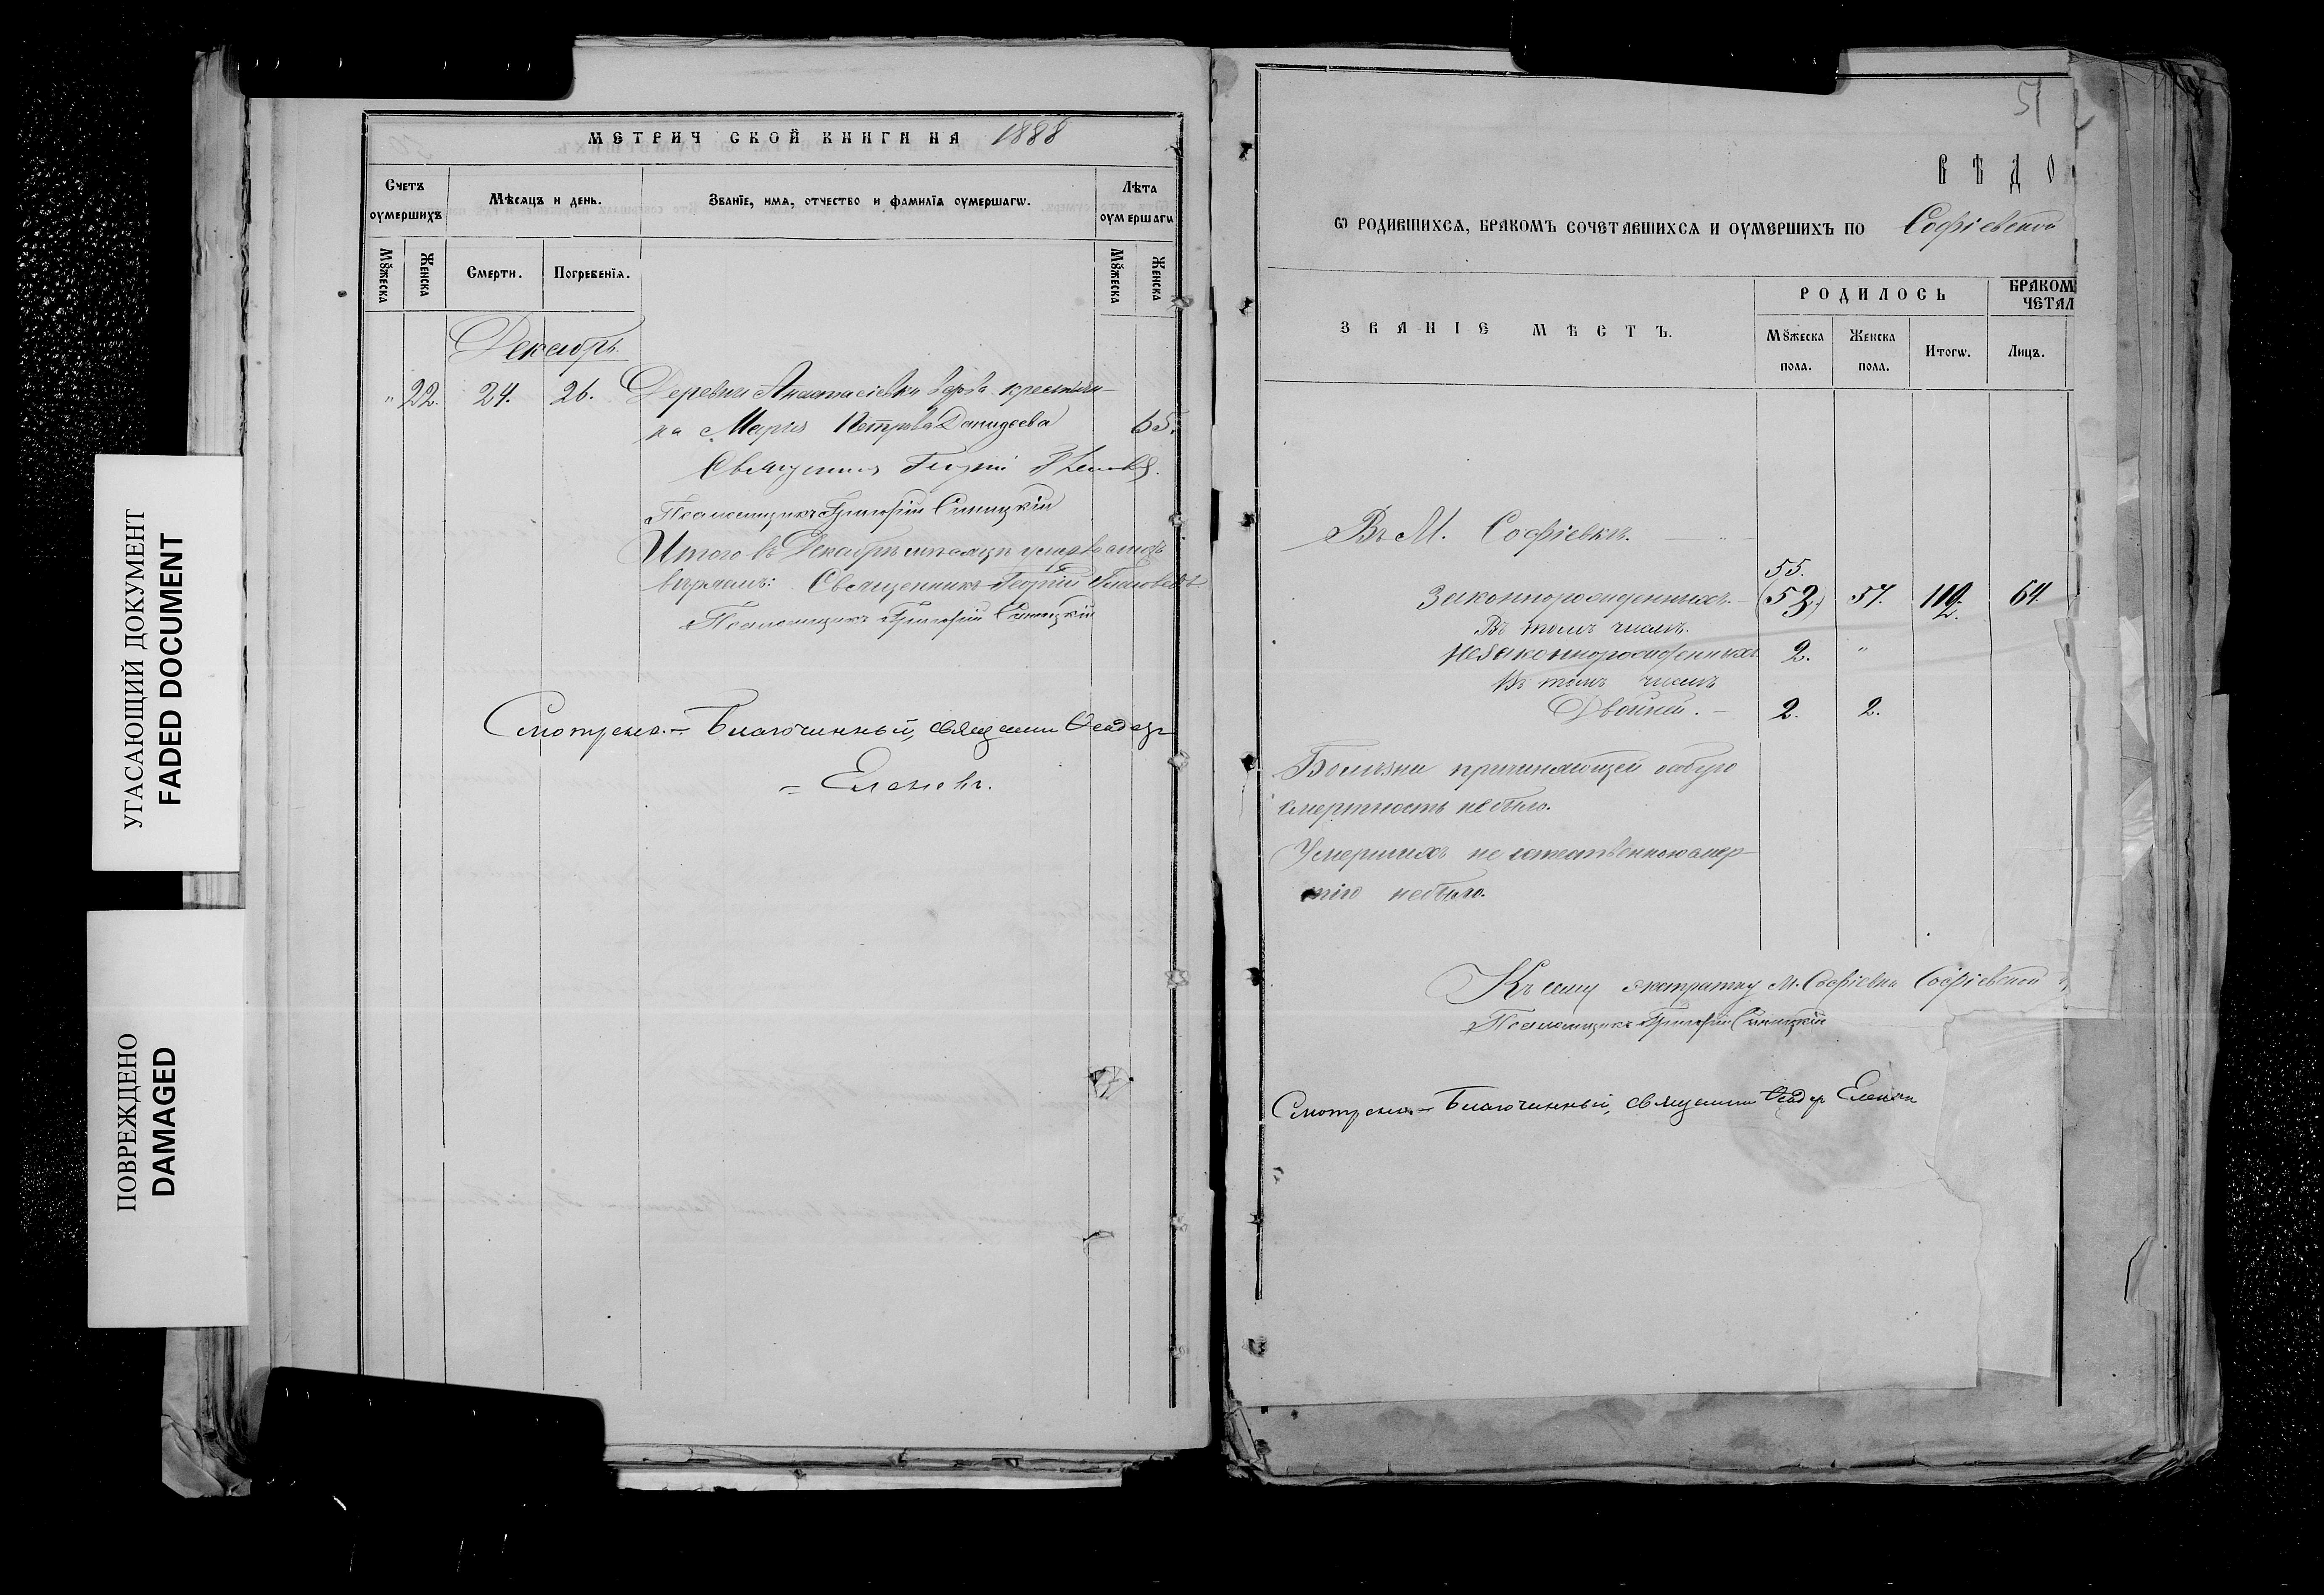 УГАСАЮЩИЙ ДОКУМЕНТ
FADED DOCUMENT
ПОВРЕЖДЕНО
DAMAGED
МЕТРИЧ СКОЙ КНИГИ НА 1888
Счетъ оумершихъ
Мѣсяцъ и день.
Званїе, имѧ, отчество и фамилїѧ оумершагѡ.
Лѣта оумершагѡ
Мꙋжеска
Женска
Смерти.
Погребенїѧ.
Мꙋжеска
Женска
Декабрь.
" 22. 24. 26. Деревни Анастасіевки вдова крестьян-
ка Марія Петрова 65.
Священникъ Георгій
Псаломщикъ Григорій Синицкій
Итого въ Декабрѣ мѣсяцѣ
вѣрно: Священникъ Георгій
Псаломщикъ Григорій Синицкій
Смотрѣно. – Благочинный, священникъ Ѳеодоръ
= Еленовъ.
51
ВѢДО
Ѡ РОДИВШИХСѦ, БРАКОМЪ СОЧЕТАВШИХСѦ И ОУМЕРШИХЪ ПО Софіевской
ЗВАНІЕ МѢСТЪ.
РОДИЛОСЬ
БРАКОМ
ЧЕТАЛ
Мꙋжеска пола.
Женска пола.
Итогѡ.
Лицъ.
Въ М. Софіевкѣ.
55.
Законнорожденныхъ. (53) 57. 112. 64.
Въ томъ числѣ.
Незаконнорожденныхъ 2. "
Въ томъ числѣ
Двойней. – 2. 2.
Болѣзни причиняющей особую
смертность небыло.
Умершихъ не естественною смер-
тію небыло.
Къ сему экстракту М. Софіевки Софіевской
Псаломщикъ Григорій Синицкій
Смотрѣно. – Благочинный, священникъ Ѳеодоръ Еленовъ